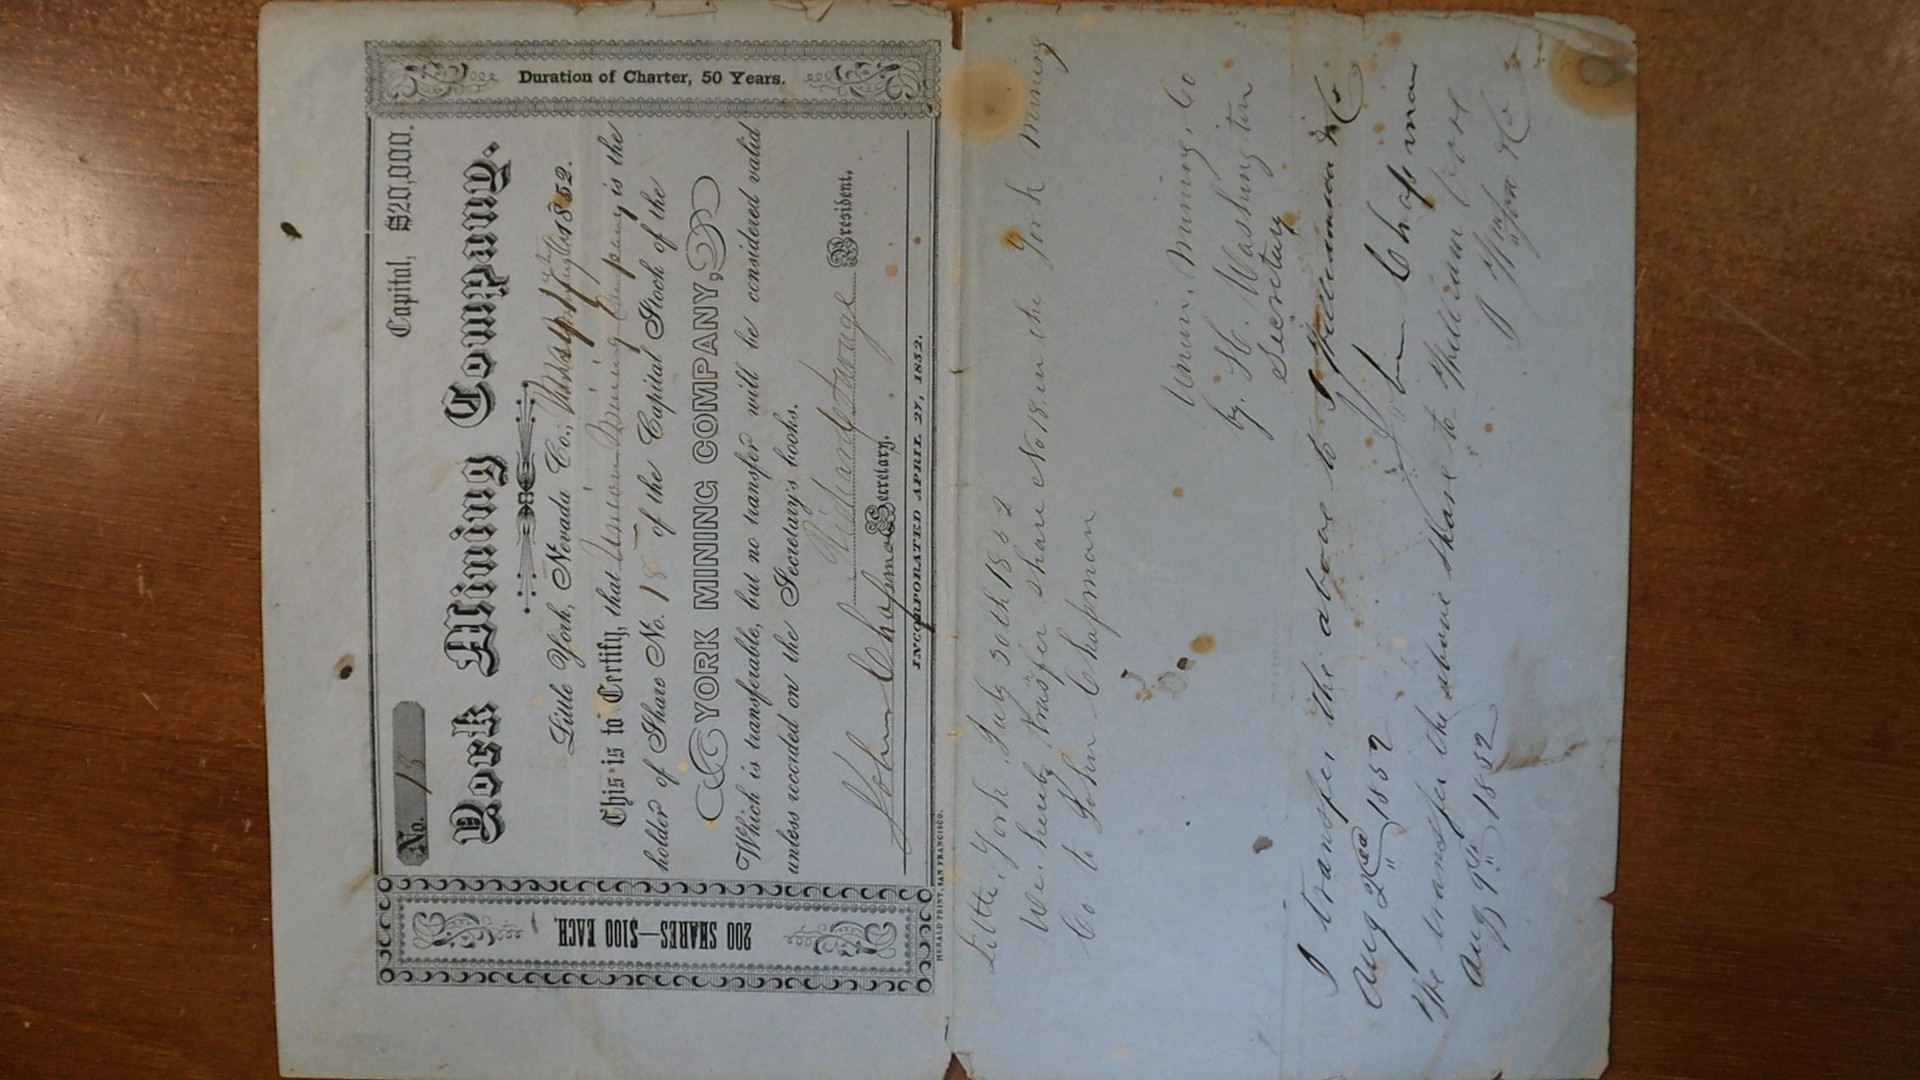 Duration of Charter, 50 Years.
200 SHARES—$100 EACH.
No. 18
Capital, $20,000.
York Mining Company.
Little York, Nevada Co., 1852.
This is to Certify, that Union Mining Company is the
holder of Share No. 18 of the Capital Stock of the
YORK MINING COMPANY,
Which is transferable, but no transfer will be considered valid
unless recorded on the Secretary's books.
Richard Savage President.
John Chapman Secretary.
INCORPORATED APRIL 27, 1852.
HERALD PRINT, SAN FRANCISCO.
Little York July 30th 1852
We hereby transfer share No 18 in the York Mining
Co to John Chapman
Union Mining Co
by H. Washington
Secretary
I transfer the above to J Williamson & Co
Aug 2nd 1852 John Chapman
We transfer the above share to William
Aug 9th 1852 J & Co